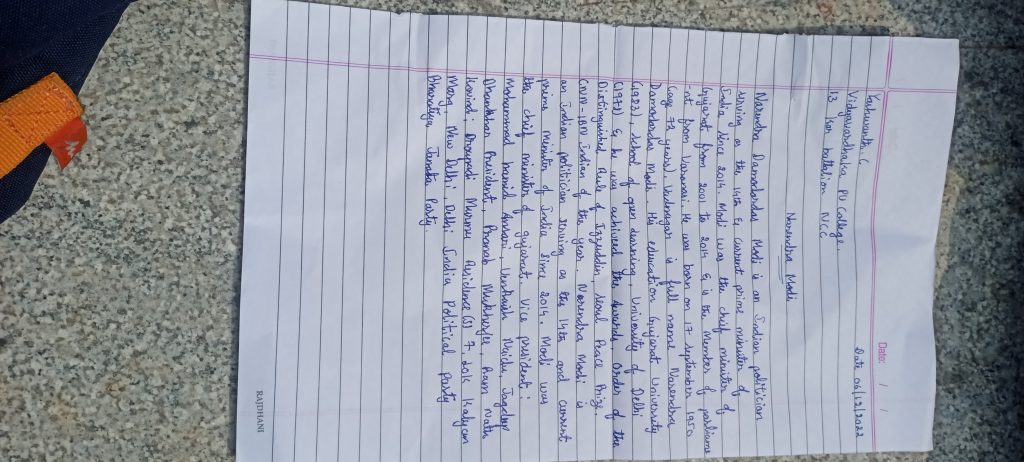 Date: / /
Yashwanth. C
Date 06/12/2022
Vidyavardhaka PU College.
13 Kar battalion NCC
Narendra Modi
Narendra Damodardas Modi is an Indian politician
serving as the 14th & current prime minister of
India since 2014. Modi was the chief minister of
Gujarat from 2001 to 2014 & is the Member of parliame
nt from Varanasi. He was born on 17 september 1950
(age 72 years), Vadnagar is full name Narendra
Damodardas Modi. His education Gujarat University
(1983), school of open learning, University of Delhi
(1978) & he was achived the awards, order of the
Distinguished Rule of Izzuddin, Seoul Peace Prize
CNN-IBN Indian of the year. Narendra Modi is
an Indian politician serving as the 14th and current
prime minister of India since 2014. Modi was
the chief minister of gujarat. Vice president:
Mohammad hamid Ansari, Venkaiah Naidu, Jagdeep
Dhankhar President, Pranab Mukherjee, Ram Nath
Kovind, Droupadi Murmu Residence (s) 7, Lok Kalyan
Marg, New Delhi, Delhi India Political Party
Bharatiya Janata Party.
RAJDHANI